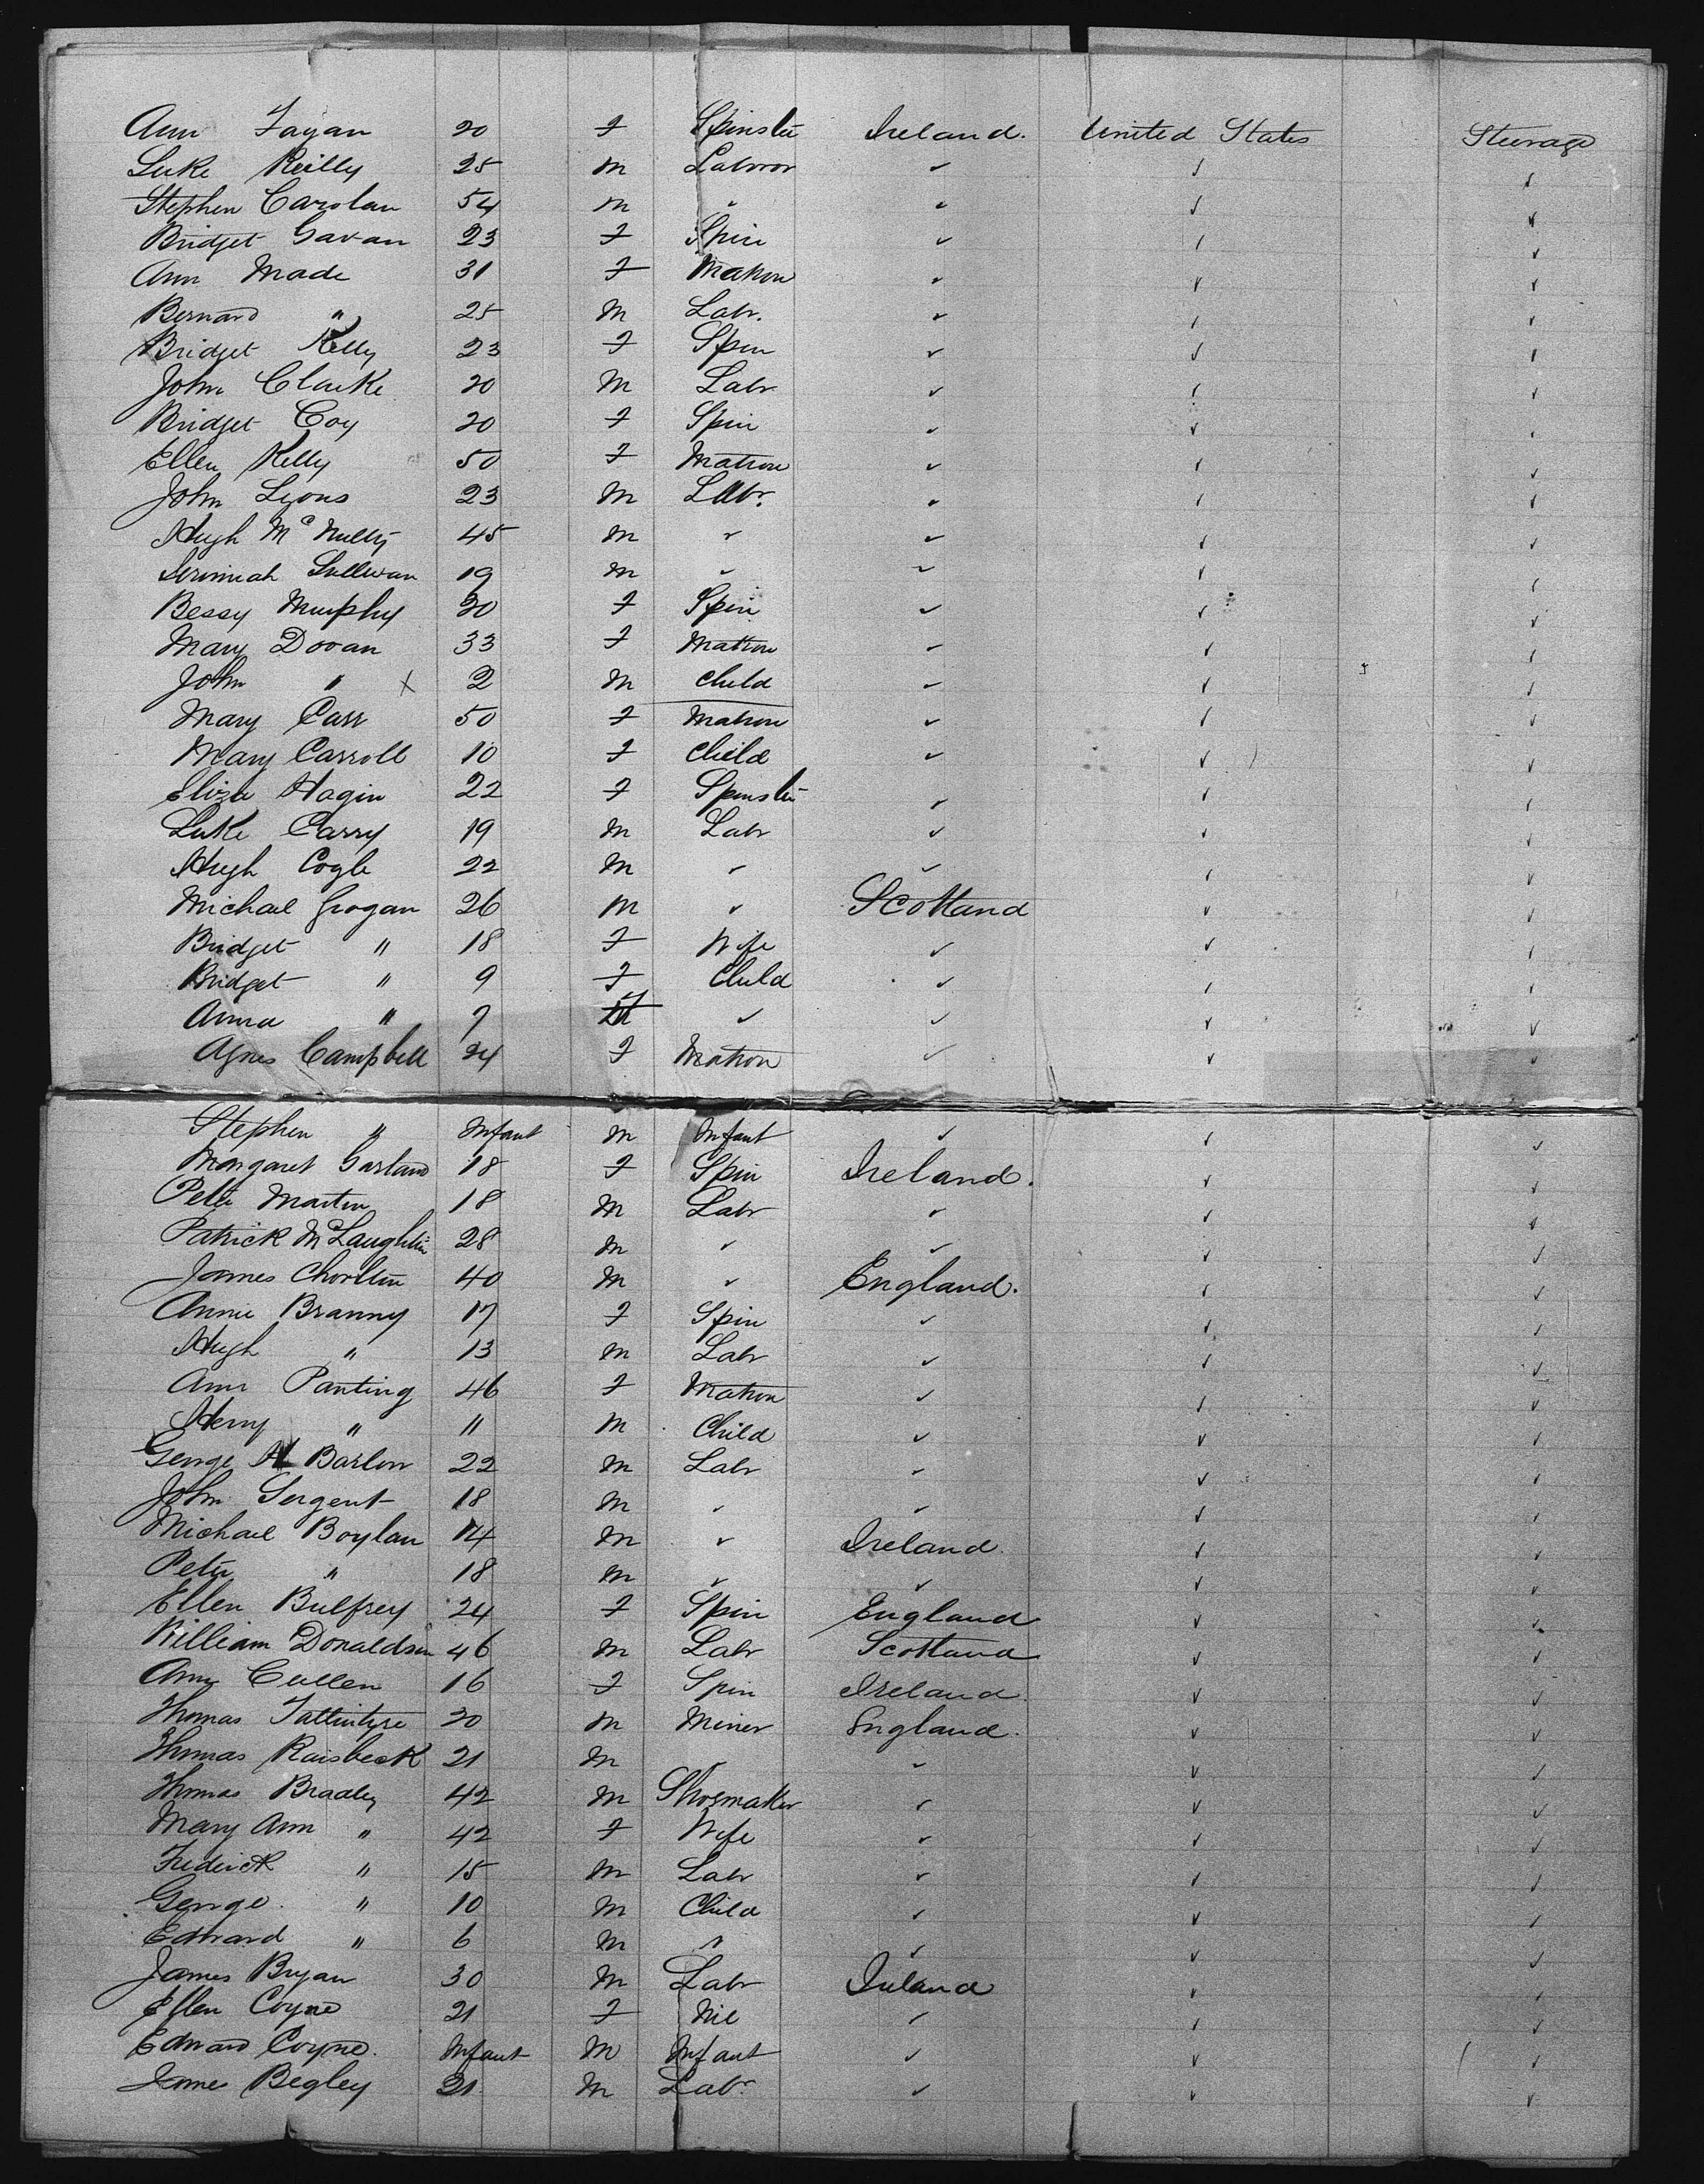 Ann Fagan 20 F Spinster Ireland. United States Steerage
Luke Reilly 25 M Laboror ✓ ✓ ✓
Stephen Carolan 54 M " ✓ ✓ ✓
Bridget Gavan 23 F Spin ✓ ✓ ✓
Ann Made 31 F Matron ✓ ✓ ✓
Bernard " 25 M Labr. ✓ ✓ ✓
Bridget Kelly 23 F Spin ✓ ✓ ✓
John Clarke 20 M Labr ✓ ✓ ✓
Bridget Coy 20 F Spin ✓ ✓ ✓
Ellen Kelly 50 F Matron ✓ ✓ ✓
John Lyons 23 M Labr. ✓ ✓ ✓
Hugh McNulty 45 M ✓ ✓ ✓ ✓
Jerimiah Sullivan 19 M ✓ ✓ ✓ ✓
Bessy Murphy 20 F Spin ✓ ✓ ✓
Mary Doran 33 F Matron ✓ ✓ ✓
John " X 2 M Child ✓ ✓ ✓
Mary Carr 50 F Matron ✓ ✓ ✓
Mary Carroll 10 F Child ✓ ✓ ✓
Eliza Hagin 22 F Spinster ✓ ✓ ✓
Luke Carry 19 M Labr ✓ ✓ ✓
Hugh Cogle 22 M ✓ ✓ ✓ ✓
Michael Grogan 26 M ✓ Scotland ✓ ✓
Bridget " 18 F Wife ✓ ✓ ✓
Bridget " 9 F Child ✓ ✓ ✓
Anna " 7 F ✓ ✓ ✓ ✓
Agnes Campbell 24 F Matron ✓ ✓ ✓
Stephen " Infant M Infant ✓ ✓ ✓
Margaret Garland 18 F Spin Ireland. ✓ ✓
Peter Martin 18 M Labr ✓ ✓ ✓
Patrick McLaughlin 28 M ✓ ✓ ✓ ✓
James Chorlton 40 M ✓ England. ✓ ✓
Annie Branny 17 F Spin ✓ ✓ ✓
Hugh " 13 M Labr ✓ ✓ ✓
Ann Panting 46 F Matron ✓ ✓ ✓
Henry " 11 M Child ✓ ✓ ✓
George H Barlow 22 M Labr ✓ ✓ ✓
John Sergent 18 M ✓ ✓ ✓ ✓
Michael Boylan 14 M ✓ Ireland. ✓ ✓
Peter " 18 M ✓ ✓ ✓ ✓
Ellen Bulfrey 24 F Spin England ✓ ✓
William Donaldson 46 M Labr Scotland ✓ ✓
Amy Cullen 16 F Spin Ireland. ✓ ✓
Thomas Tattintyre 20 M Miner England. ✓ ✓
Thomas Raisbeck 21 M ✓ ✓ ✓ ✓
Thomas Bradley 42 M Shoemaker ✓ ✓ ✓
Mary Ann " 42 F Wife ✓ ✓ ✓
Frederick " 15 M Labr ✓ ✓ ✓
George. " 10 M Child ✓ ✓ ✓
Edward " 6 M " ✓ ✓ ✓
James Bryan 30 M Labr Ireland ✓ ✓
Ellen Coyne 21 F Nil ✓ ✓ ✓
Edward Coyne. Infant M Infant ✓ ✓ ✓
James Begley 21 M Labr ✓ ✓ ✓